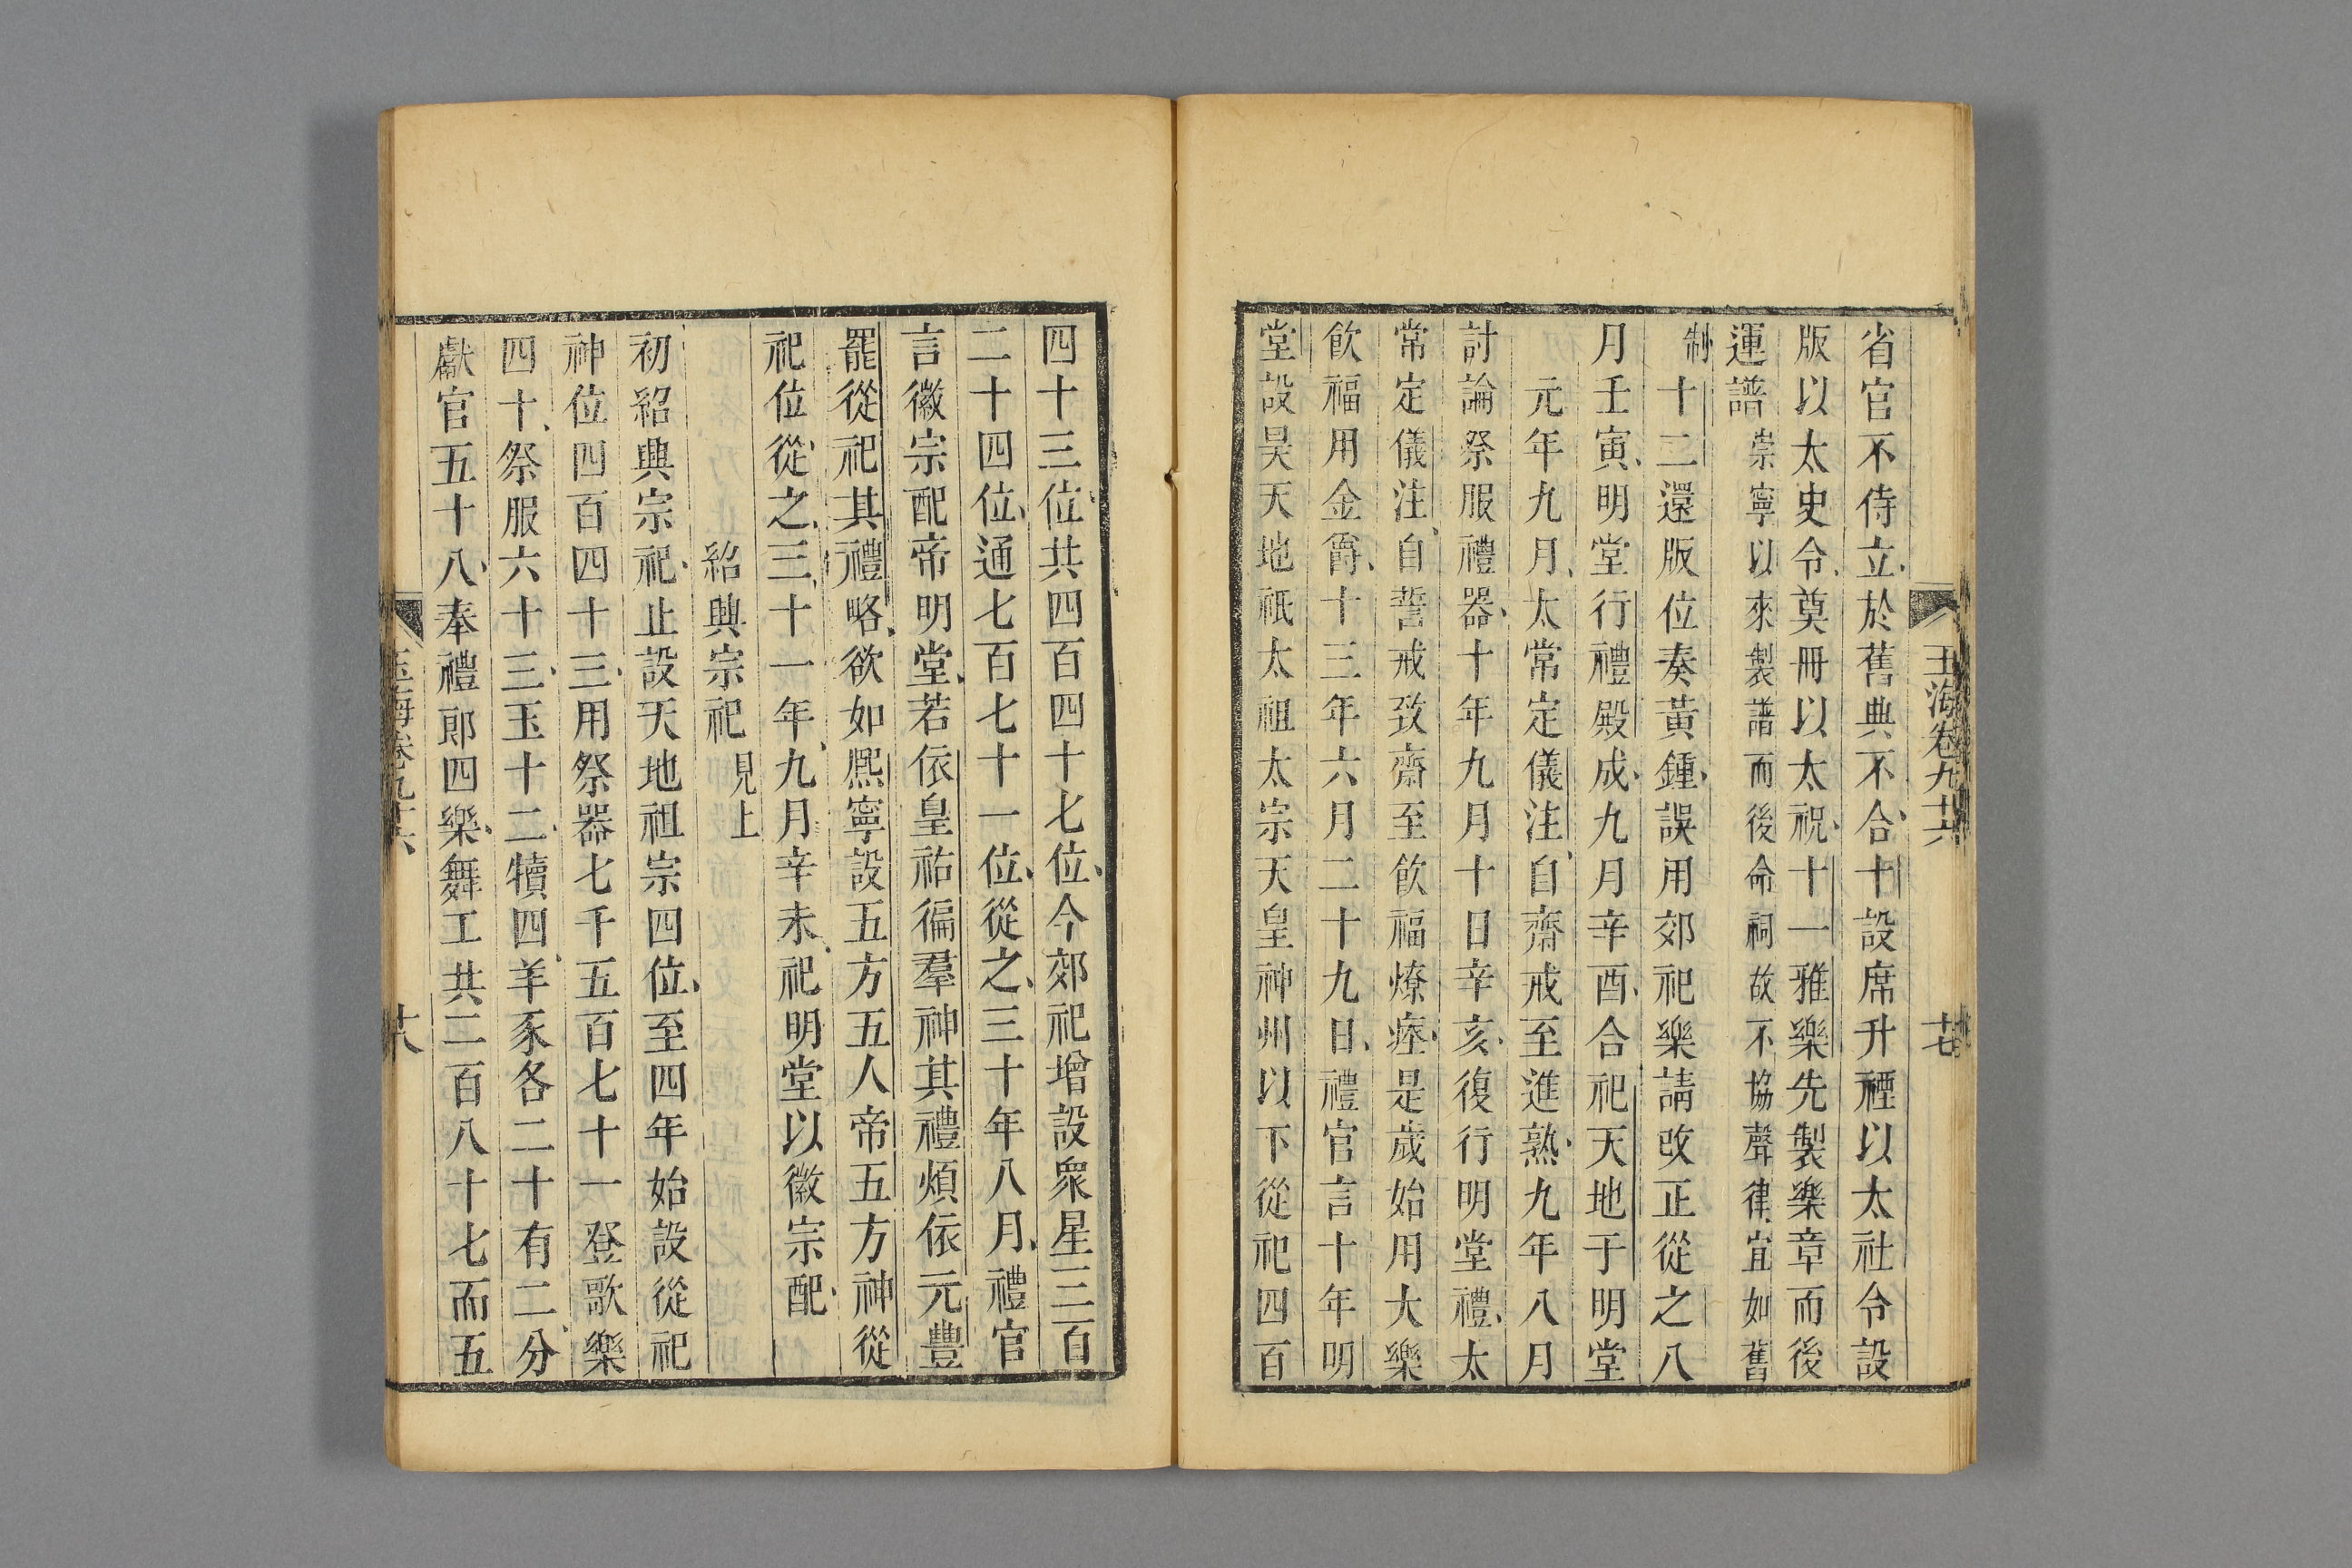 玉海卷九十六
廿七
省官不侍立於舊典不合十設席升禋以太社令設
版以太史令奠冊以太祝十一雅樂先製樂章而後
運譜崇寧以來製譜而後命祠故不協聲律宜如舊
制十二還版位奏黃鍾誤用郊祀樂請改正從之八
月壬寅明堂行禮殿成九月辛酉合祀天地于明堂
元年九月太常定儀注自齋戒至進熟九年八月
討論祭服禮器十年九月十日辛亥復行明堂禮太
常定儀注自誓戒致齋至飲福燎瘞是歲始用大樂
飲福用金爵十三年六月二十九日禮官言十年明
堂設昊天地祇太祖太宗天皇神州以下從祀四百
四十三位共四百四十七位今郊祀增設衆星三百
二十四位通七百七十一位從之三十年八月禮官
言徽宗配帝明堂若依皇祐徧羣神其禮煩依元豐
罷從祀其禮略欲如熈寧設五方五人帝五方神從
祀位從之三十一年九月辛未祀明堂以徽宗配
紹興宗祀見上
初紹興宗祀止設天地祖宗四位至四年始設從祀
神位四百四十三用祭器七千五百七十一登歌樂
四十祭服六十三玉十二犢四羊豕各二十有二分
獻官五十八奉禮郎四樂舞工共二百八十七而五
玉海卷九十六
廿八